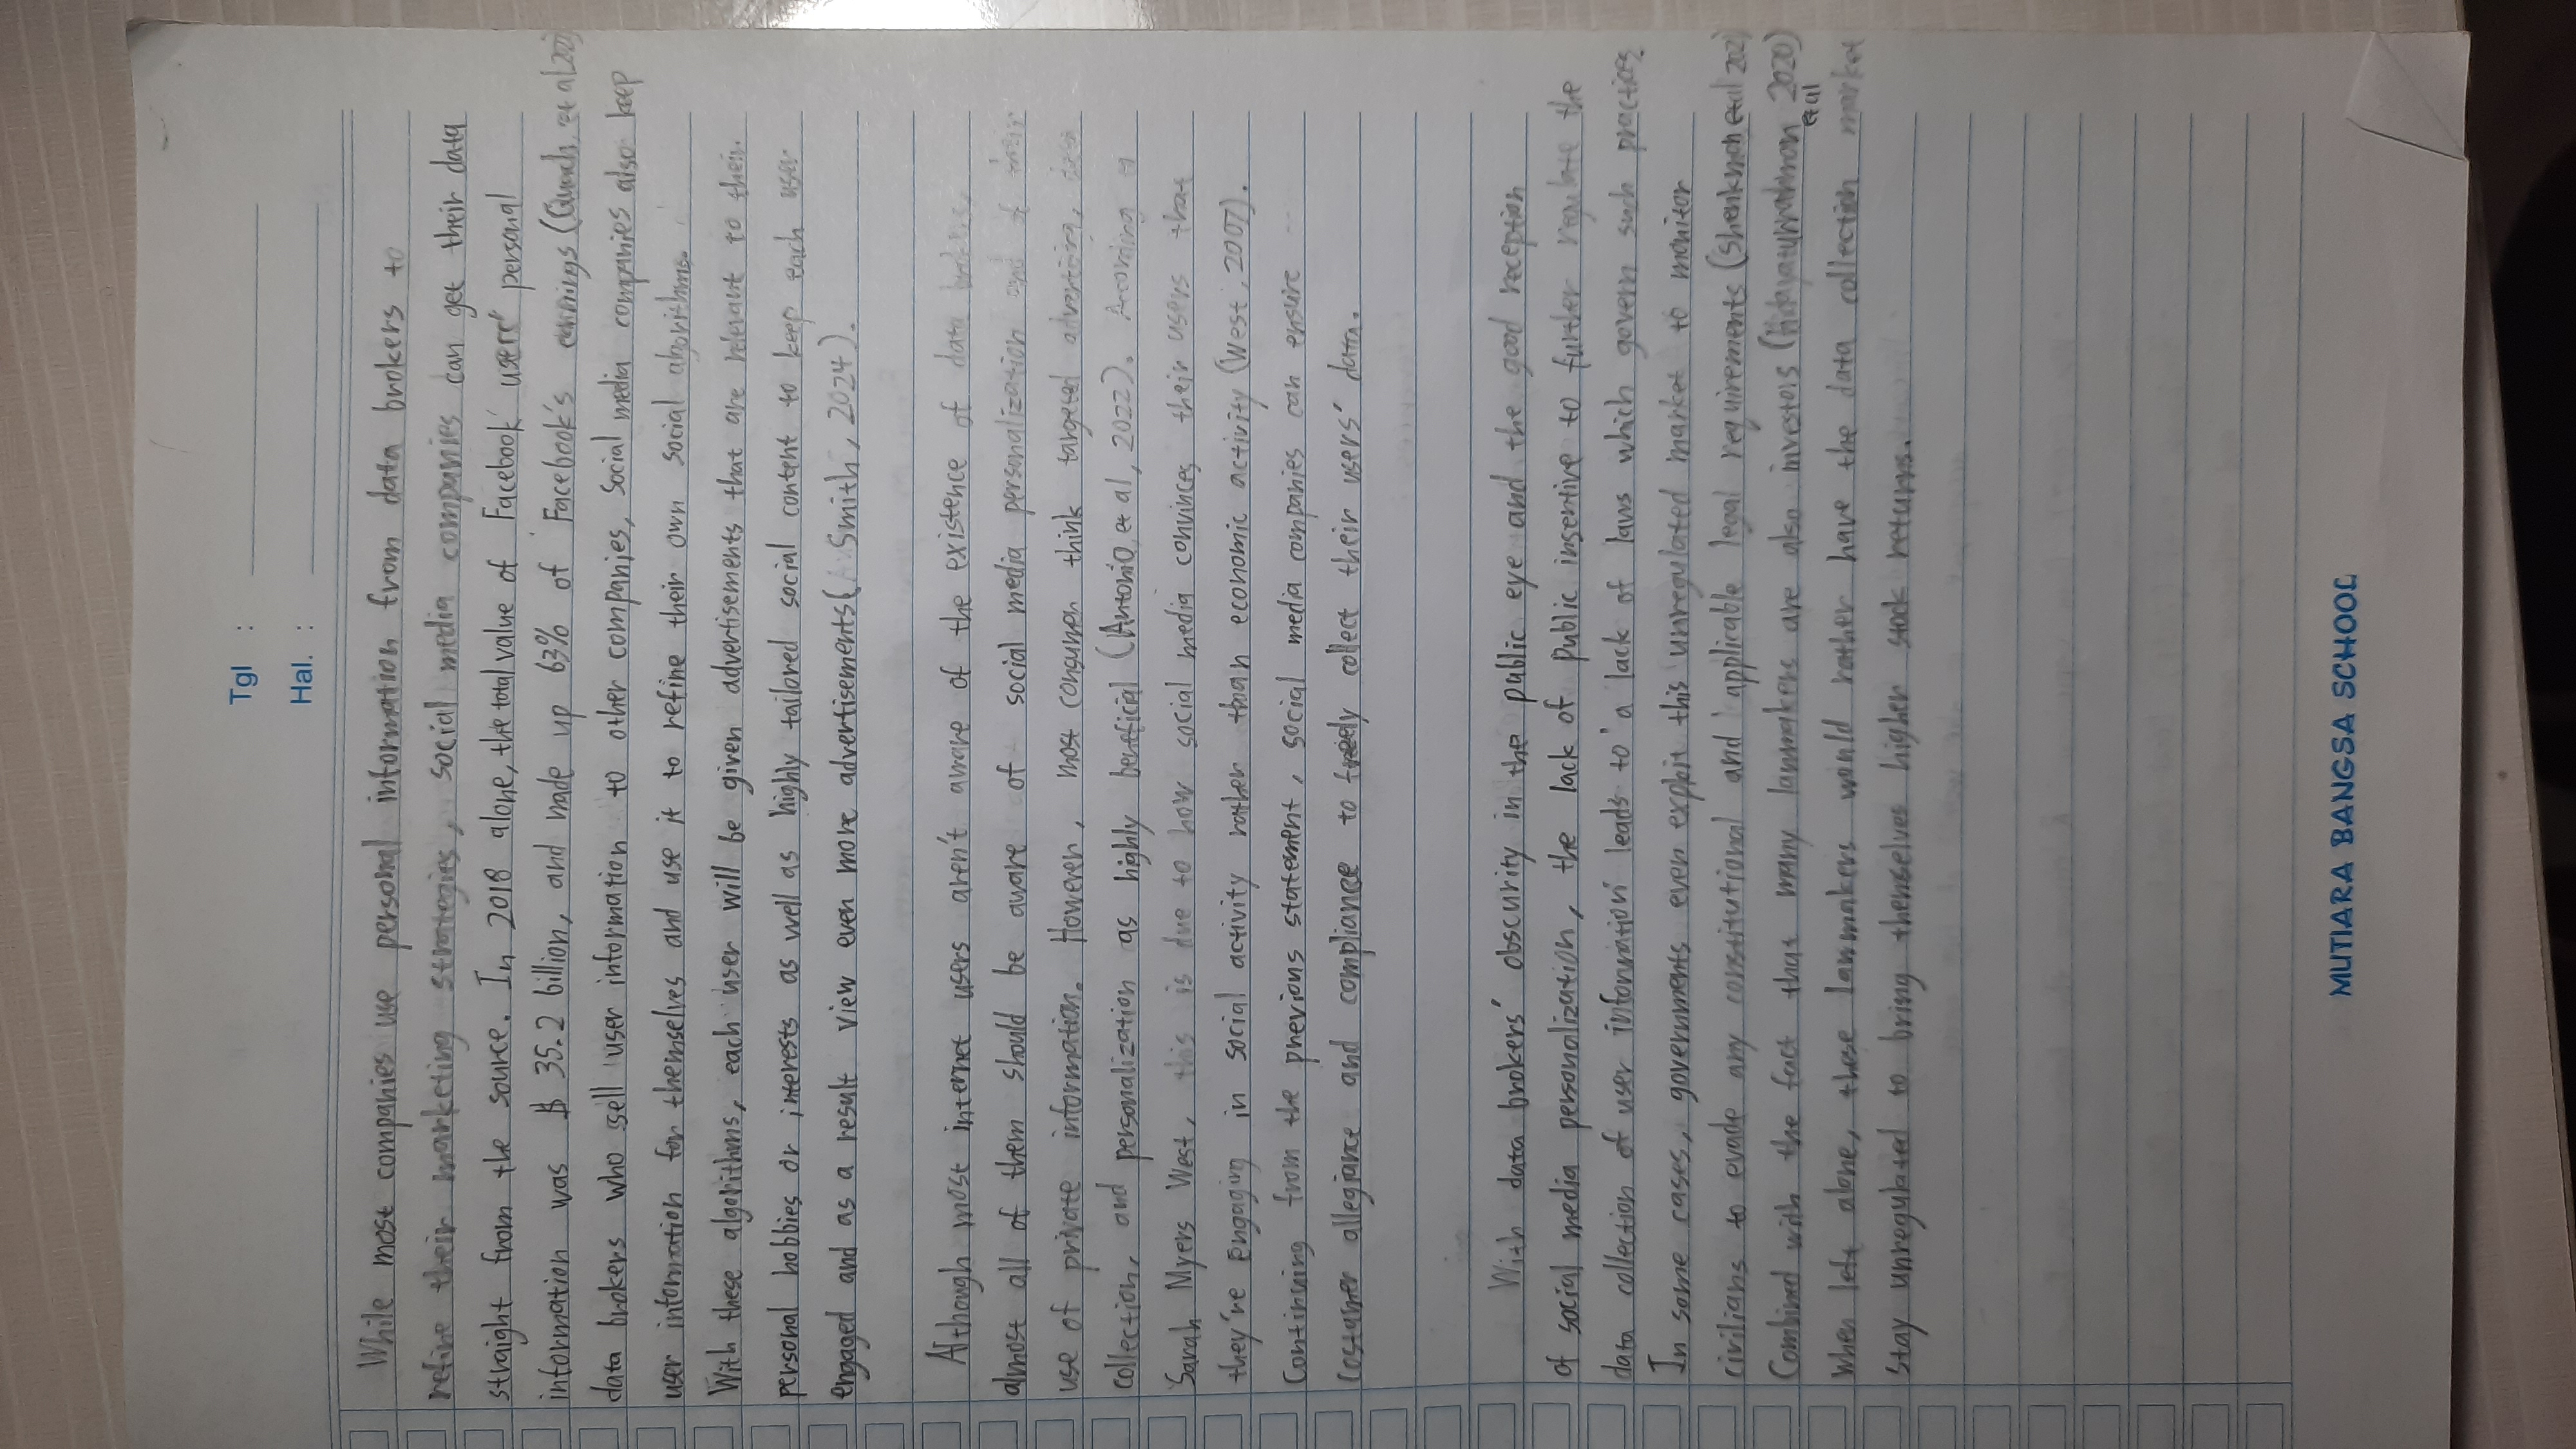 Tgl :
Hal. :
While most companies use personal information from data brokers to
refine their marketing strategies, social media companies can get their data
straight from the source. In 2018 alone, the total value of Facebook users' personal
information was $ 35.2 billion, and made up 63% of Facebook's earnings (Quach, et al
data brokers who sell user information to other companies, social media companies also keep
user information for themselves and use it to refine their own social algorithms.
With these algorithms, each user will be given advertisements that are relevant to their
personal hobbies or interests as well as highly tailored social content to keep each user
engaged and as a result view even more advertisements ( Smith, 2024).
Although most internet users aren't aware of the existence of data brokers,
almost all of them should be aware of social media personalization and of their
use of private information. However, most consumer think targeted advertising, data
collection, and personalization as highly beneficial (Antonio, et al, 2022). According
Sarah Myers West, this is due to how social media convinces their users that
they're engaging in social activity rather than economic activity (West, 2007).
Continuing from the previous statement, social media companies can ensure
costumer allegiance and compliance to freely collect their users' data.
With data brokers' obscurity in the public eye and the good reception
of social media personalization, the lack of public insentive to further regulate the
data collection of user information leads to a lack of laws which govern such practices.
In some cases, governments even exploit this unregulated market to monitor
civilians to evade any constitutional and applicable legal requirements (Shenkman et al
Combined with the fact that many lawmakers are also investors (Hidayaturrahman et al 2020)
when left alone, these lawmakers would rather have the data collection market
stay unregulated to bring themselves higher stock returns.
MUTIARA BANGSA SCHOOL